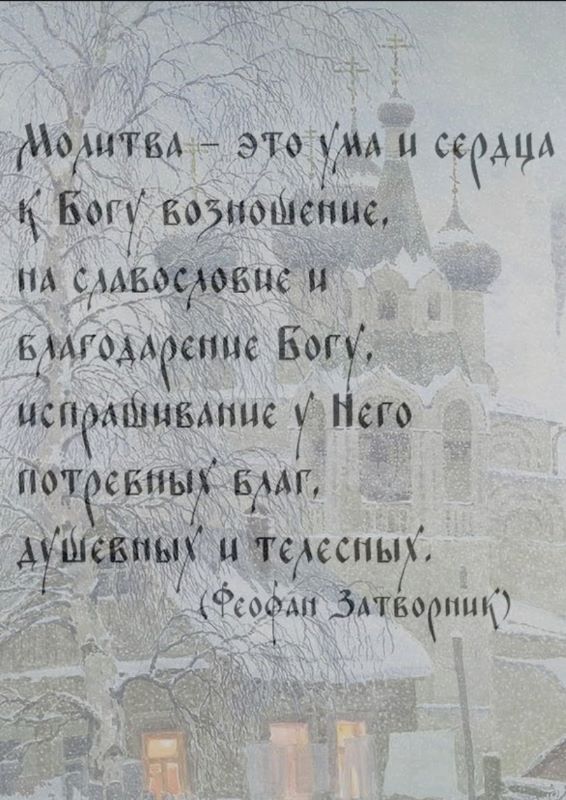 Молитва – это ума и сердца
к Богу возношение,
на славословие и
благодарение Богу,
испрашивание у Него
потребных благ,
душевных и телесных.
(Феофан Затворник)